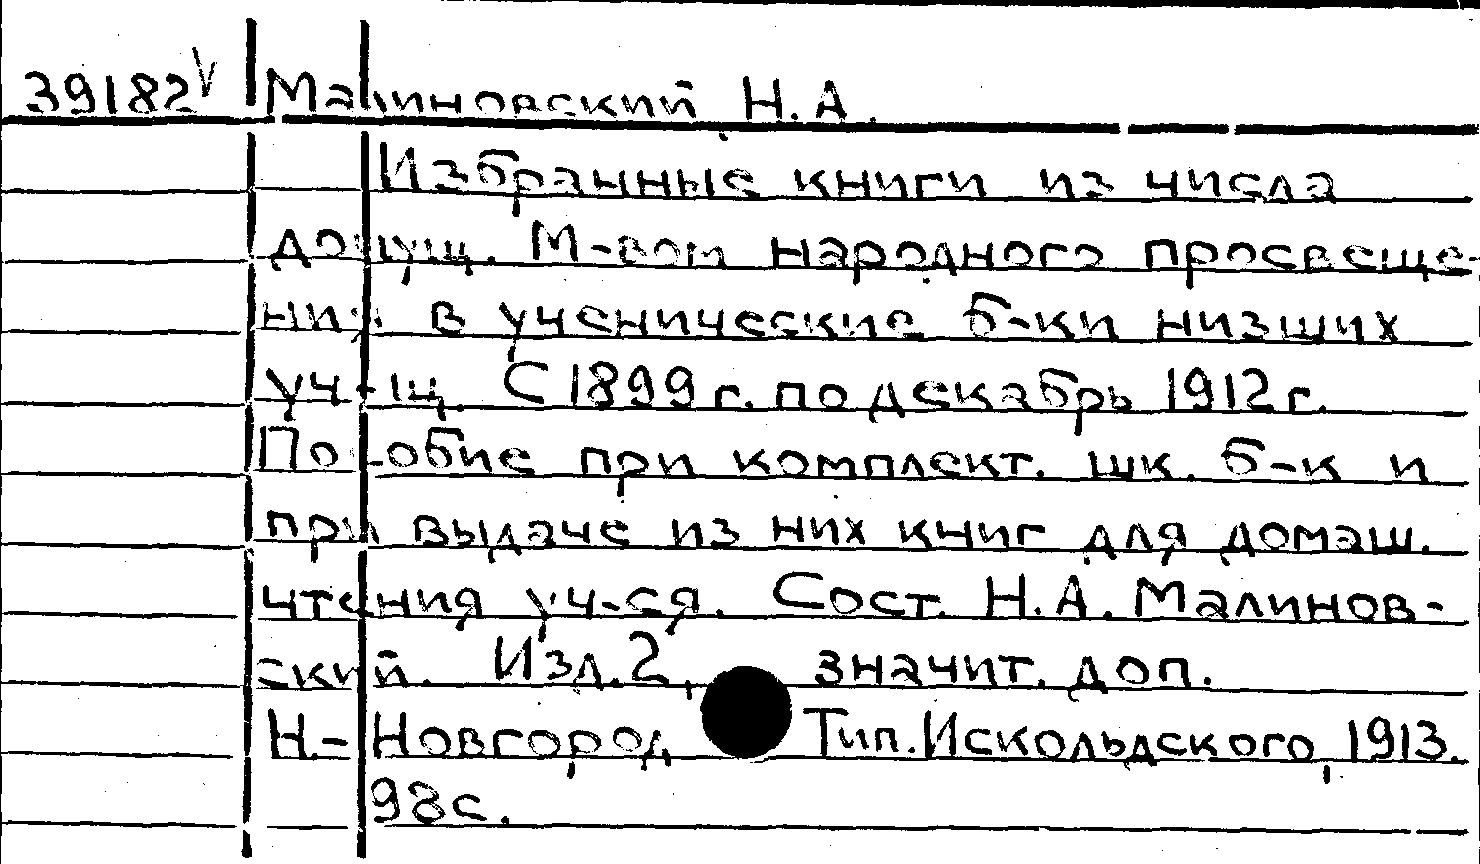 39182 V Малиновский Н.А.
Избранные книги из числа
допущ. М-вом народного просвеще-
ния в ученические б-ки низших
уч-щ. С 1899 г. по декабрь 1912 г.
Пособие при комплект. шк. б-к и
при выдаче из них книг для домаш.
чтения уч-ся. Сост. Н.А. Малинов-
ский. Изд. 2, значит. доп.
Н.-Новгород Тип. Искольдского, 1913.
98 с.